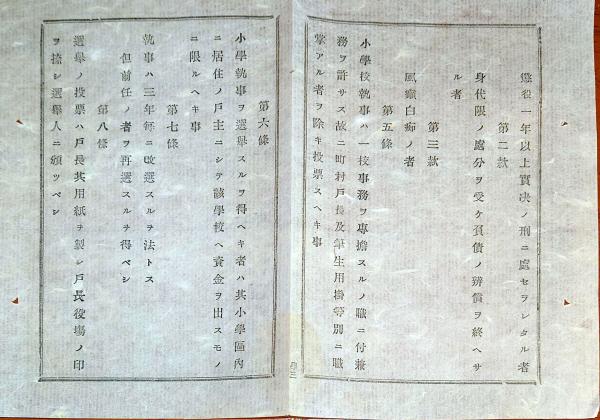 懲役一年以上實決ノ刑ニ處セラレタル者
第二款
身代限ノ處分ヲ受ケ負債ノ辨償ヲ終ヘサ
ル者
第三款
風癲白痴ノ者
第五條
小學校執事ハ一校事務ヲ専擔スルノ職ニ付兼
務ヲ許サス故ニ町村戸長及筆生用掛等別ニ職
掌アル者ヲ除キ投票スヘキ事
第六條
小學執事ヲ選擧スルヲ得ヘキ者ハ其小學區內
ニ居住ノ戸主ニシテ該學校ヘ資金ヲ出スモノ
ニ限ルヘキ事
第七條
執事ハ三年每ニ改選スルヲ法トス
但前任ノ者ヲ再選スルヿ得ベシ
第八條
選擧ノ投票ハ戸長其用紙ヲ製シ戸長役場ノ印
ヲ捺シ選擧人ニ頒ツベシ